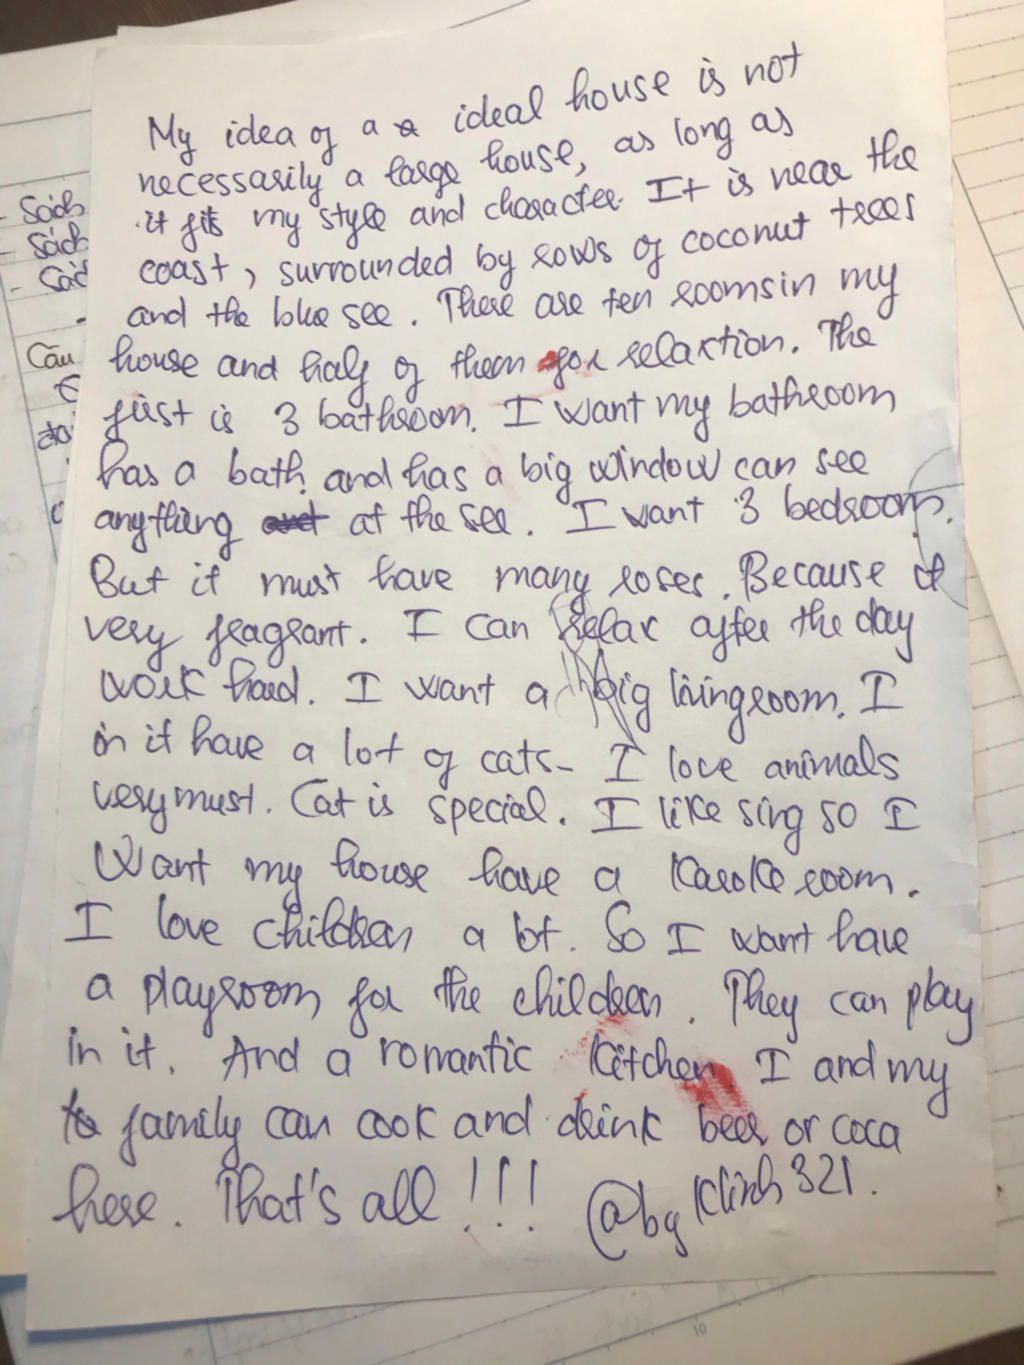 My idea of a a ideal house is not
necessarily a large house, as long as
it fits my style and character. It is near the
coast, surrounded by rows of coconut trees
and the blue see. There are ten rooms in my
house and half of them for relaxtion. The
first is 3 bathroom. I want my bathroom
has a bath and has a big window can see
anything at the see. I want 3 bedroom.
But it must have many roses. Because it
very fragrant. I can relax after the day
work hard. I want a big livingroom. I
in it have a lot of cats- I love animals
verymust. Cat is special. I like sing so I
Want my house have a Karoke room.
I love children a lot. So I want have
a playroom for the children. They can play
in it. And a romantic Kitchen I and my
family can cook and drink beer or coca
here. That's all !!! @by Klinh321.
- Sách
- Sách
- Sác
Câu
10